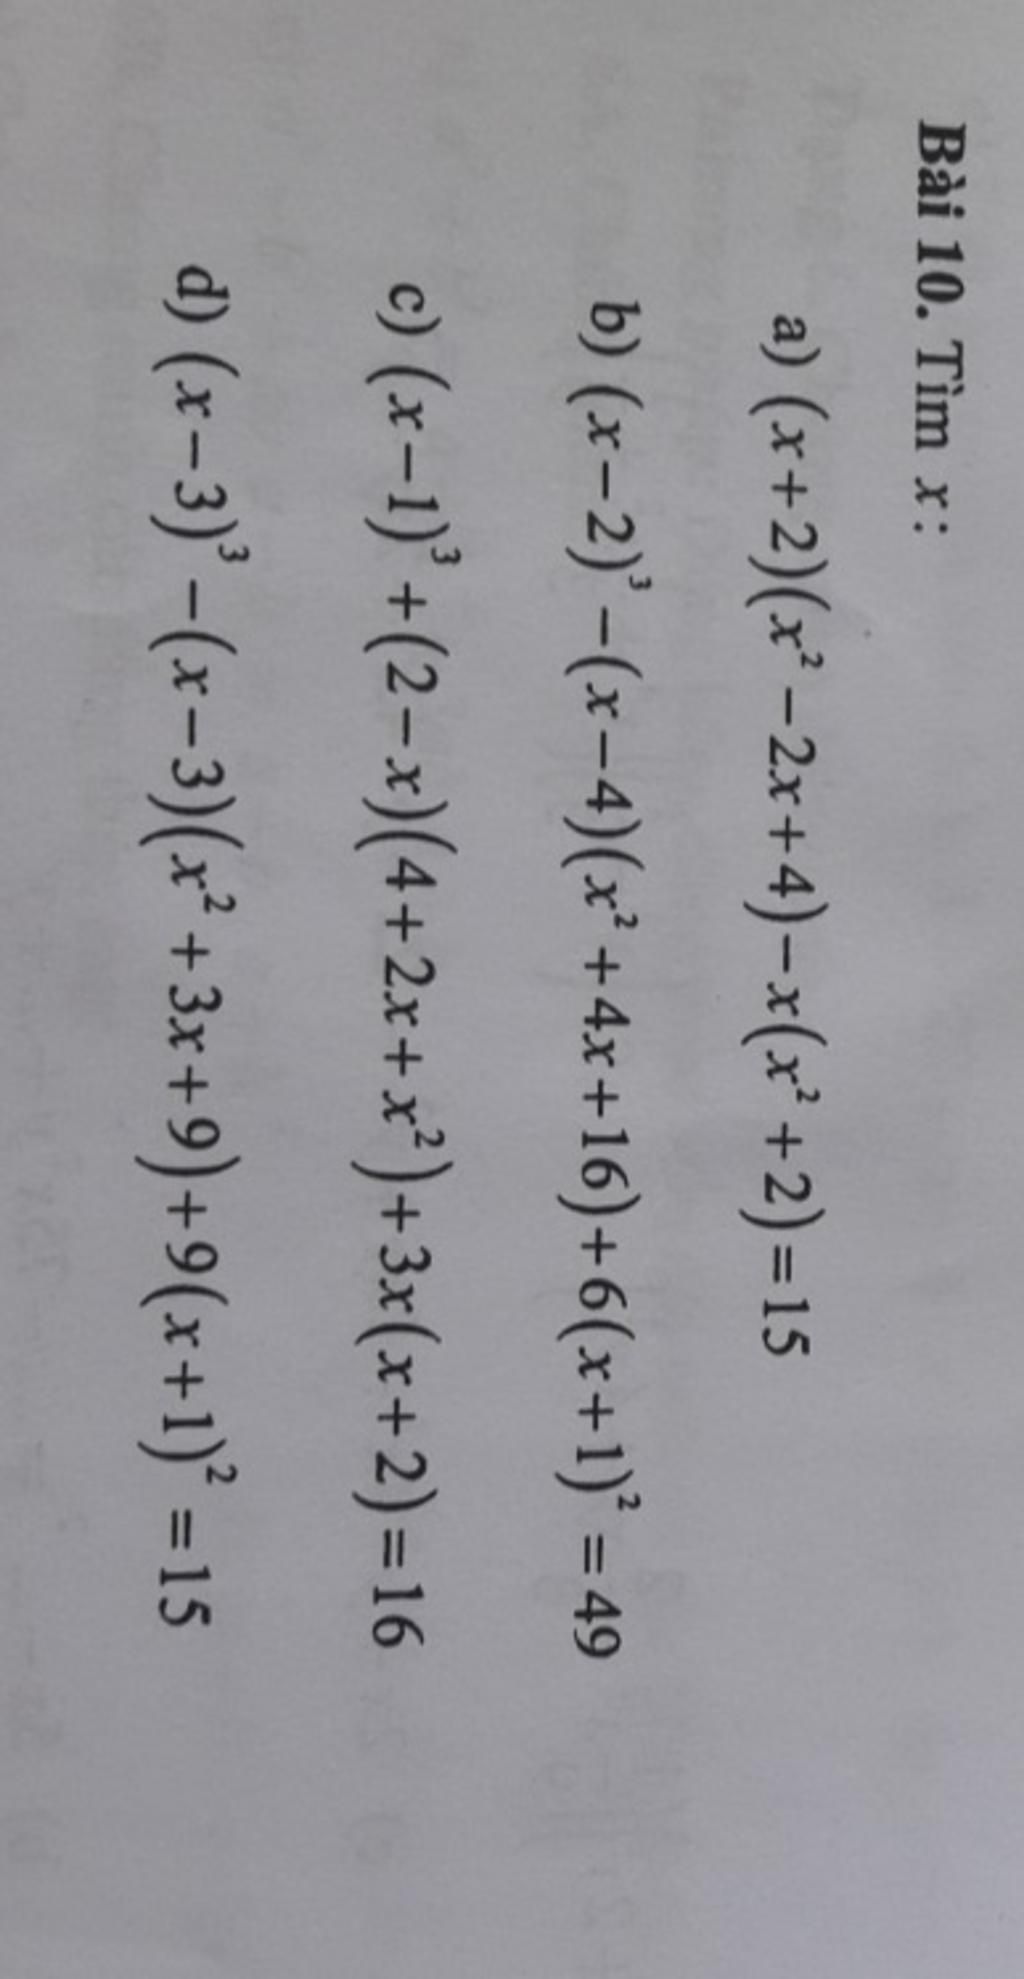 Bài 10. Tìm x:
a) (x+2)(x²-2x+4)-x(x²+2)=15
b) (x-2)³-(x-4)(x²+4x+16)+6(x+1)²=49
c) (x-1)³+(2-x)(4+2x+x²)+3x(x+2)=16
d) (x-3)³-(x-3)(x²+3x+9)+9(x+1)²=15